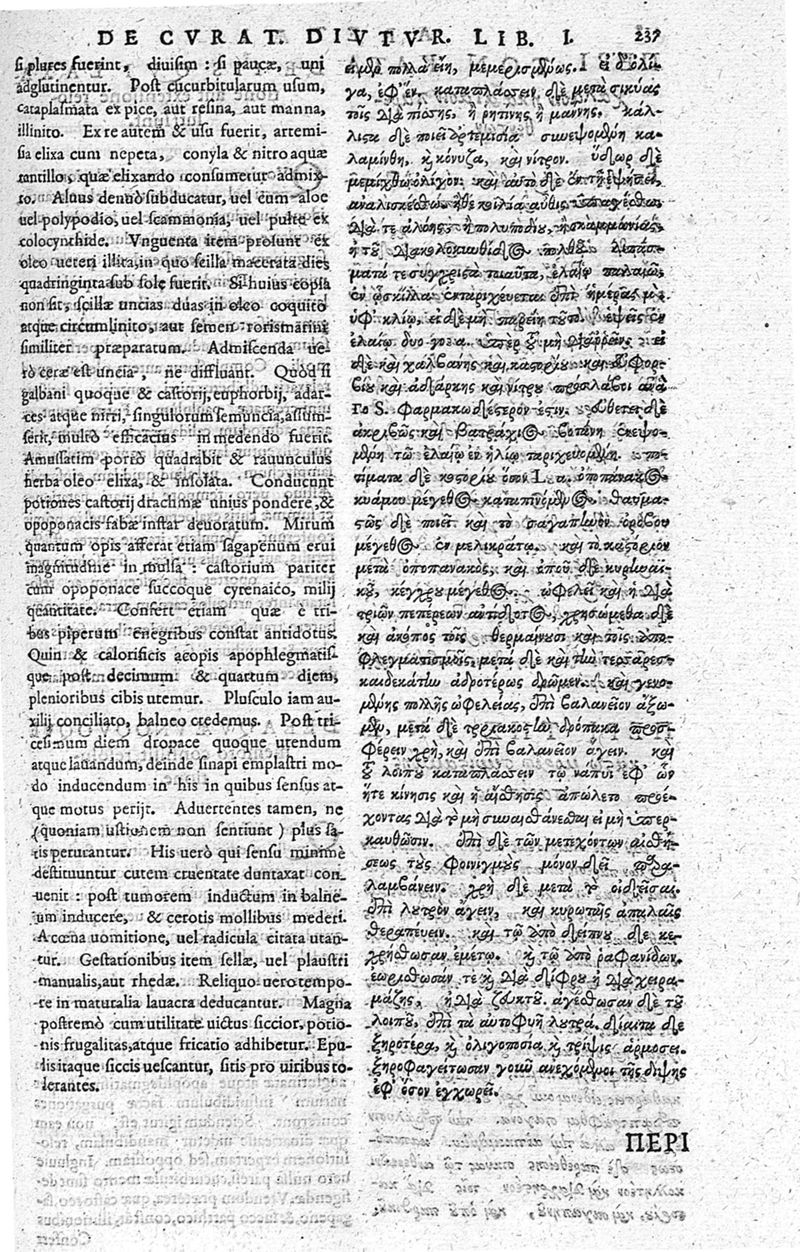 DE CVRAT. DIVTVR. LIB. I. 237
si plures fuerint, diuisim: si paucæ, uni
adglutinentur. Post cucurbitularum usum,
cataplasmata ex pice, aut resina, aut manna,
illinito. Ex re autem & usu fuerit, artemi-
sia elixa cum nepeta, conyla & nitro aquæ
tantillo, quæ elixando consumetur admix-
to. Aluus denuò subducatur, uel cum aloe
uel polypodio, uel scammonia, uel pulte ex
colocynthide. Vnguenta item prosunt ex
oleo ueteri illita, in quo scilla macerata dies
quadringinta sub sole fuerit. Si huius copia
non sit, scillæ uncias duas in oleo coquito
atque circumlinito, aut semen rorismarini
similiter præparatum. Admiscenda ue-
rò ceræ est uncia, ne diffluant. Quòd si
galbani quoque & castorij, euphorbij, adar-
ces atque nitri, singulorum semuncia, assum-
serit, multò efficacius in medendo fuerit.
Amussatim porrò quadrabit & rauunculus
herba oleo elixa, & insolata. Conducunt
potiones castorij drachmæ unius pondere, &
opoponacis fabæ instar deuoratum. Mirum
quantum opis afferat etiam sagapenum erui
magnitudine in mulsa: castorium pariter
cum opoponace succoque cyrenaico, milij
quantitate. Confert etiam quæ è tri-
bus piperum generibus constat antidotus.
Quin & calorificis acopis apophlegmatis-
que post decimum & quartum diem,
plenioribus cibis utemur. Plusculo iam au-
xilij conciliato, balneo credemus. Post tri-
cesimum diem dropace quoque utendum
atque lauandum, deinde sinapi emplastri mo-
do inducendum in his in quibus sensus at-
que motus perijt. Aduertentes tamen, ne
(quoniam ustionem non sentiunt) plus sa-
tis perurantur. His uerò qui sensu minimè
destituuntur cutem cruentate duntaxat con-
uenit: post tumorem inductum in balne-
um inducere, & cerotis mollibus mederi.
A cœna uomitione, uel radicula citata utan-
tur. Gestationibus item sellæ, uel plaustri
manualis, aut rhedæ. Reliquo uero tempo-
re in maturalia lauacra deducantur. Magna
postremò cum utilitate uictus siccior, potio-
nis frugalitas, atque fricatio adhibetur. Epu-
dis itaque siccis uescantur, sitis pro uiribus to-
lerantes.
εἰ μὲν πολλὰ εἴη, μεμερισμένως. εἰ δ' ὀλί-
γα, ἐφ' ἓν. καταπλάσσειν δὲ μετὰ σικύας
τοῖς διὰ πίσσης, ἢ ῥητίνης ἢ μάννης, κάλ-
λιστα δὲ ποιεῖ ἀρτεμισία συνεψομένη κα-
λαμίνθη, καὶ κόνυζα, καὶ νίτρον. ὕδωρ δὲ
μεμίχθω ὀλίγον. καὶ αὐτὸ δὲ ἐν τῇ ἑψήσει
ἀναλισκέσθω.
διὰ τε ἀλόης, ἢ πολυποδίου, ἢ σκαμμωνίας,
ματά τε σύγχριστα τοιαῦτα, ἐλαίῳ παλαιῷ,
ἐν ᾧ σκίλλα ἐνταριχεύεται ἐπὶ ἡμέρας μ.
ὑφ' ἡλίῳ, εἰ δὲ μὴ παρείη τοῦτο. ἑψεῖς ἐν
δὲ καὶ χαλβάνης καὶ καστορίου καὶ εὐφορ-
βίου καὶ ἀδάρκης καὶ νίτρου προσλάβοι ἀνὰ
ἀκριβῶς καὶ βατράχιος βοτάνη ἑνεψο-
μένη τῷ ἐλαίῳ ἐν ἡλίῳ ταριχευομένη. πο-
κυάμου μέγεθος καταπινόμενος. θαυμα-
στῶς δὲ ποιεῖ καὶ τὸ σαγαπηνὸν ὀρόβου
μέγεθος ἐν μελικράτῳ. καὶ τὸ καστόριον
μετὰ ὀποπάνακος, καὶ ὀποῦ δὲ κυρηναϊ-
κοῦ, κέγχρου μέγεθος. ὠφελεῖ καὶ ἡ διὰ
τριῶν πεπέρεων ἀντίδοτος, χρησώμεθα δὲ
καὶ ἀκόποις τοῖς θερμαίνουσι καὶ τοῖς ἀπο-
φλεγματισμοῖς, μετὰ δὲ καὶ τὴν τεσσαρεσ-
καιδεκάτην ἁδροτέρως δρῶμεν. καὶ γενο-
μένης πολλῆς ὠφελείας, ἐπὶ βαλανεῖον ἄξω-
μεν, μετὰ δὲ τριακοστὴν δρώπακα προσ-
φέρειν χρὴ, καὶ ἐπὶ βαλανεῖον ἄγειν. καὶ
τοῦ λοιποῦ καταπλάσσειν τῷ νάπυι ἐφ' ὧν
ἥτε κίνησις καὶ ἡ αἴσθησις ἀπώλετο προσέ-
χοντας διὰ τὸ μὴ συναισθάνεσθαι εἰ μὴ ὑπερ-
καυθῶσιν. ἐπὶ δὲ τῶν μετεχόντων αἰσθή-
σεως τοὺς φοινιγμοὺς μόνον δεῖ παρα-
λαμβάνειν. χρὴ δὲ μετὰ τὸ οἰδεῖσαι
ἐπὶ λουτρὸν ἄγειν, καὶ κηρωταῖς ἁπαλαῖς
θεραπεύειν. καὶ τῷ ἀπὸ δείπνου δὲ κε-
χρήσθωσαν ἐμέτῳ. καὶ τῷ ἀπὸ ῥαφανίδων.
ἐωρείσθωσάν τε καὶ διὰ δίφρου ἢ διὰ χειρα-
μάξης, ἢ διὰ ζευκτοῦ. ἀγέσθωσαν δὲ τοῦ
λοιποῦ, ἐπὶ τὰ αὐτοφυῆ λουτρά. δίαιτα δὲ
ξηροτέρα, καὶ ὀλιγοποσία καὶ τρίψις ἁρμόσει.
ξηροφαγείτωσαν γοῦν ἀνεχόμενοι τῆς δίψης
ἐφ' ὅσον ἐγχωρεῖ.
ΠΕΡΙ